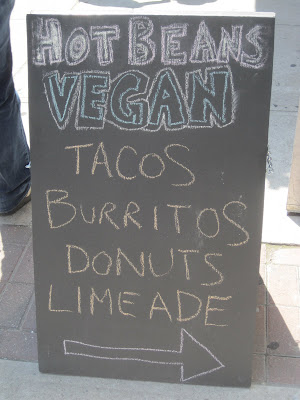 HOT BEANS
VEGAN
TACOS
BURRITOS
DONUTS
LIMEADE